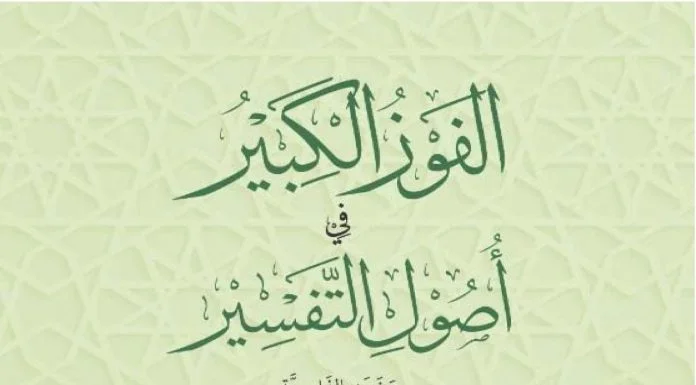 الفَوْزُ الْكَبِيْرُ
فِيْ
أُصُوْلِ التَّفْسِيْرِ